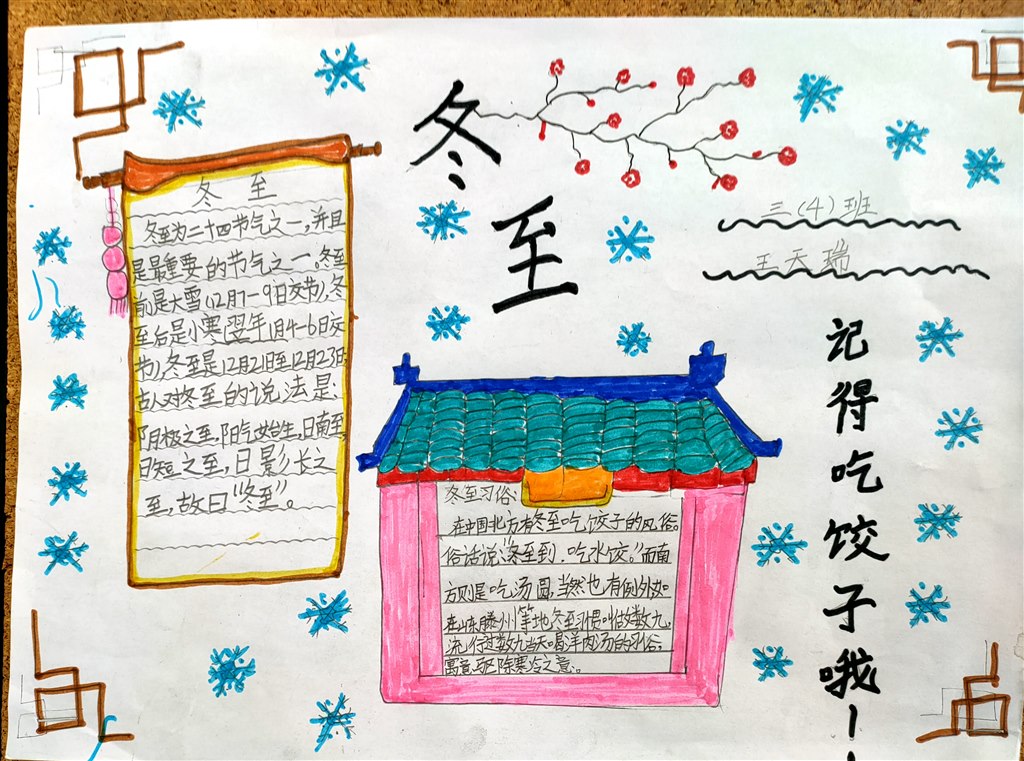 冬至
三(4)班
王天瑞
冬至
冬至为二十四节气之一,并且
是最重要的节气之一。冬至
前是大雪(12月7-9日交节),冬
至后是小寒(翌年1月4-6日交
节),冬至是12月21日至12月23日
古人对冬至的说法是:
阴极之至,阳气始生,日南至,
日短之至,日影长之
至,故曰“冬至”。
冬至习俗:
在中国北方有冬至吃饺子的风俗。
俗话说“冬至到,吃水饺。”而南
方则是吃汤圆,当然也有例外,如
在山东滕州等地冬至习惯叫做数九,
流行过数九当天喝羊肉汤的习俗,
寓意驱除寒冷之意。
记得吃饺子哦!